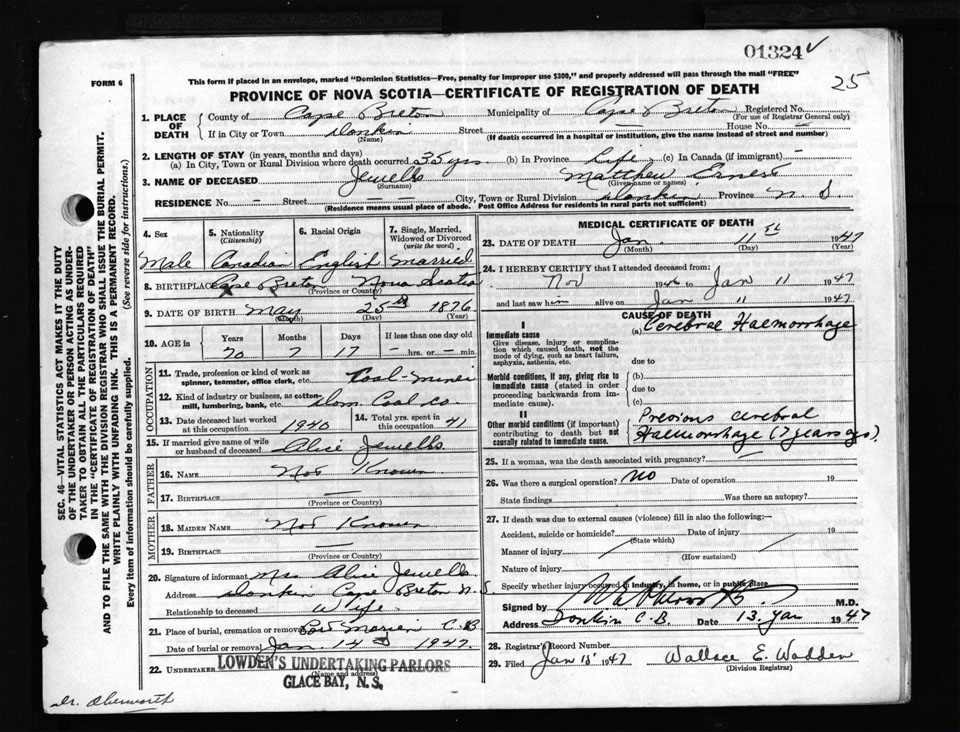 01324
25
FORM 6
This form if placed in an envelope, marked "Dominion Statistics—Free, penalty for improper use $300," and properly addressed will pass through the mail "FREE"
PROVINCE OF NOVA SCOTIA—CERTIFICATE OF REGISTRATION OF DEATH
1. PLACE OF DEATH
County of Cape Breton Municipality of Cape Breton Registered No.
(For use of Registrar General only)
If in City or Town Donkin Street House No. —
(Name) (If death occurred in a hospital or institution, give the name instead of street and number)
2. LENGTH OF STAY (in years, months and days)
(a) In City, Town or Rural Division where death occurred 35 yrs (b) In Province Life (c) In Canada (if immigrant) —
3. NAME OF DECEASED Jewells Matthew Ernest
(Surname) (Given name or names)
RESIDENCE No. — Street — — City, Town or Rural Division Donkin Province N. S.
(Residence means usual place of abode. Post Office Address for residents in rural parts not sufficient)
4. Sex
Male
5. Nationality
(Citizenship)
Canadian
6. Racial Origin
English
7. Single, Married, Widowed or Divorced
(write the word)
married
8. BIRTHPLACE Cape Breton Nova Scotia
(Province or Country)
9. DATE OF BIRTH May 25th 1876
(Month) (Day) (Year)
10. AGE in
Years Months Days If less than one day old
70 7 17 — hrs. or — min.
OCCUPATION
11. Trade, profession or kind of work as spinner, teamster, office clerk, etc. Coal-Miner
12. Kind of industry or business, as cotton-mill, lumbering, bank, etc. Dom. Coal Co.
13. Date deceased last worked at this occupation 1940
14. Total yrs. spent in this occupation 41
15. If married give name of wife or husband of deceased Alice Jewells
FATHER
16. NAME Not Known
17. BIRTHPLACE —
(Province or Country)
MOTHER
18. MAIDEN NAME Not Known
19. BIRTHPLACE —
(Province or Country)
20. Signature of informant Mrs Alice Jewells
Address Donkin Cape Breton N. S.
Relationship to deceased Wife
21. Place of burial, cremation or removal Port Morien C. B.
Date of burial or removal Jan. 14 1947.
22. UNDERTAKER LOWDEN'S UNDERTAKING PARLORS
(Name and address)
GLACE BAY, N.S.
MEDICAL CERTIFICATE OF DEATH
23. DATE OF DEATH Jan. 11 1947
(Month) (Day) (Year)
24. I HEREBY CERTIFY that I attended deceased from:
Nov 1946 to Jan 11 1947
and last saw him alive on Jan 11 1947
CAUSE OF DEATH
I
Immediate cause
Give disease, injury or complication which caused death, not the mode of dying, such as heart failure, asphyxia, asthenia, etc.
(a) Cerebral Haemorrhage
due to
Morbid conditions, if any, giving rise to immediate cause (stated in order proceeding backwards from immediate cause).
(b)
due to
(c)
II
Other morbid conditions (if important) contributing to death but not causally related to immediate cause.
Previous cerebral
Haemorrhage (7 years ago)
25. If a woman, was the death associated with pregnancy? —
26. Was there a surgical operation? NO Date of operation 19
State findings Was there an autopsy?
27. If death was due to external causes (violence) fill in also the following:—
Accident, suicide or homicide? Date of injury 19
(State which)
Manner of injury
(How sustained)
Nature of injury
Specify whether injury occurred in industry, in home, or in public place
Signed by M.D.
Address Donkin C.B. Date 13. Jan 1947
28. Registrar's Record Number
29. Filed Jan 15 1947 Wallace E. Wadden
(Division Registrar)
SEC. 46—VITAL STATISTICS ACT MAKES IT THE DUTY
OF THE UNDERTAKER OR PERSON ACTING AS UNDERTAKER TO OBTAIN ALL THE PARTICULARS REQUIRED
IN THE "CERTIFICATE OF REGISTRATION OF DEATH"
AND TO FILE THE SAME WITH THE DIVISION REGISTRAR WHO SHALL ISSUE THE BURIAL PERMIT.
WRITE PLAINLY WITH UNFADING INK. THIS IS A PERMANENT RECORD.
Every item of information should be carefully supplied. (See reverse side for instructions.)
Dr.